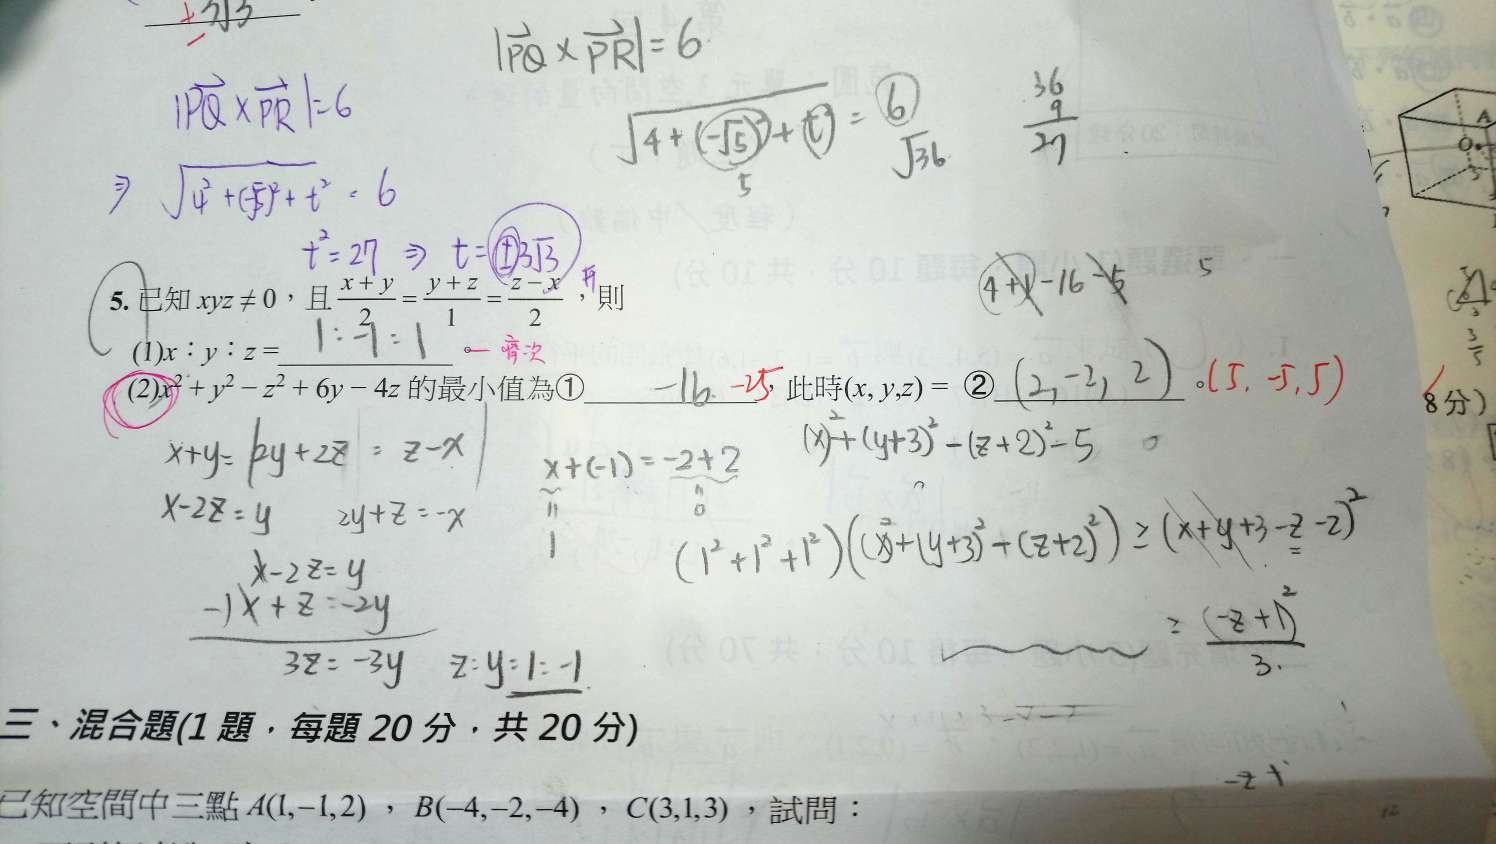 |PQ × PR| = 6
|PQ × PR| = 6
√(4 + (-√5)² + t²) = 6
5
√36
36
9
27
⇒ √(4² + (-√5)² + t²) = 6
t² = 27 ⇒ t = ±3√3
4+1-16-5
5
5. 已知 xyz ≠ 0,且 (x + y)/2 = (y + z)/1 = (z − x)/2 ,則
(1)x:y:z = 1 : -1 : 1 。 齊次
(2)x² + y² − z² + 6y − 4z 的最小值為① -16 -25 ,此時(x, y,z) = ② (2, -2, 2) 。(5, -5, 5)
8分)
x+y= 2y+2z = z-x
x+(-1) = -2+2
(x)²+(y+3)²-(z+2)²-5
x-2z=y 2y+z=-x
1
0
(1²+1²+1²)((x)²+(y+3)²-(z+2)²) ≥ (x+y+3-z-2)²
x-2z=y
-)x+z=-2y
≥ (-z+1)²/3
3z=-3y z:y=1:-1
三、混合題(1 題,每題 20 分,共 20 分)
-z+
已知空間中三點 A(1,−1,2) , B(−4,−2,−4) , C(3,1,3) ,試問:
A
O